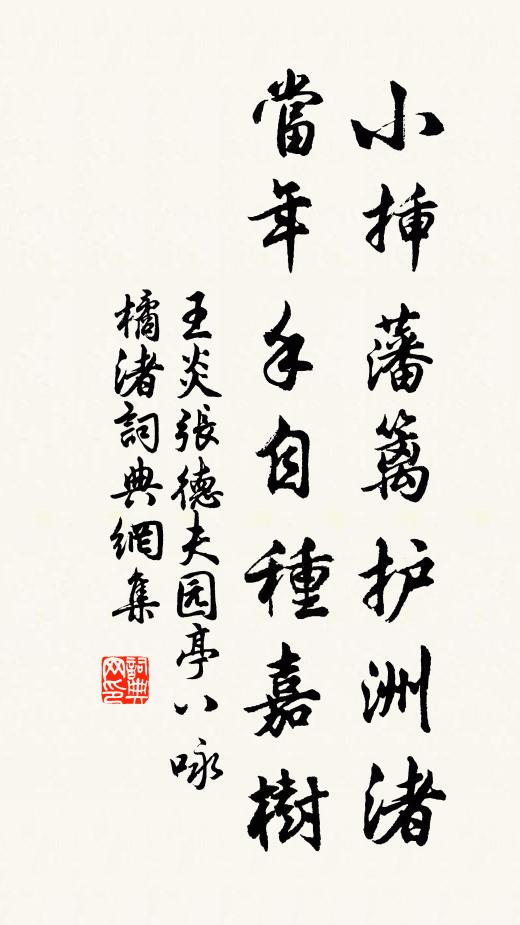 小揷藩篱护洲渚
當年手自種嘉樹
王炎張德夫园亭八咏
橘渚詞典網集
詞典网印